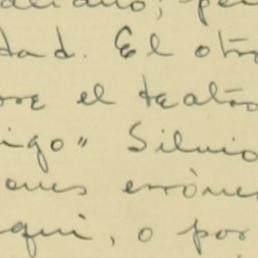 aliano, pe
dad. El otr
re el teatro
igo" Silvio
ones erróne
qui, o por